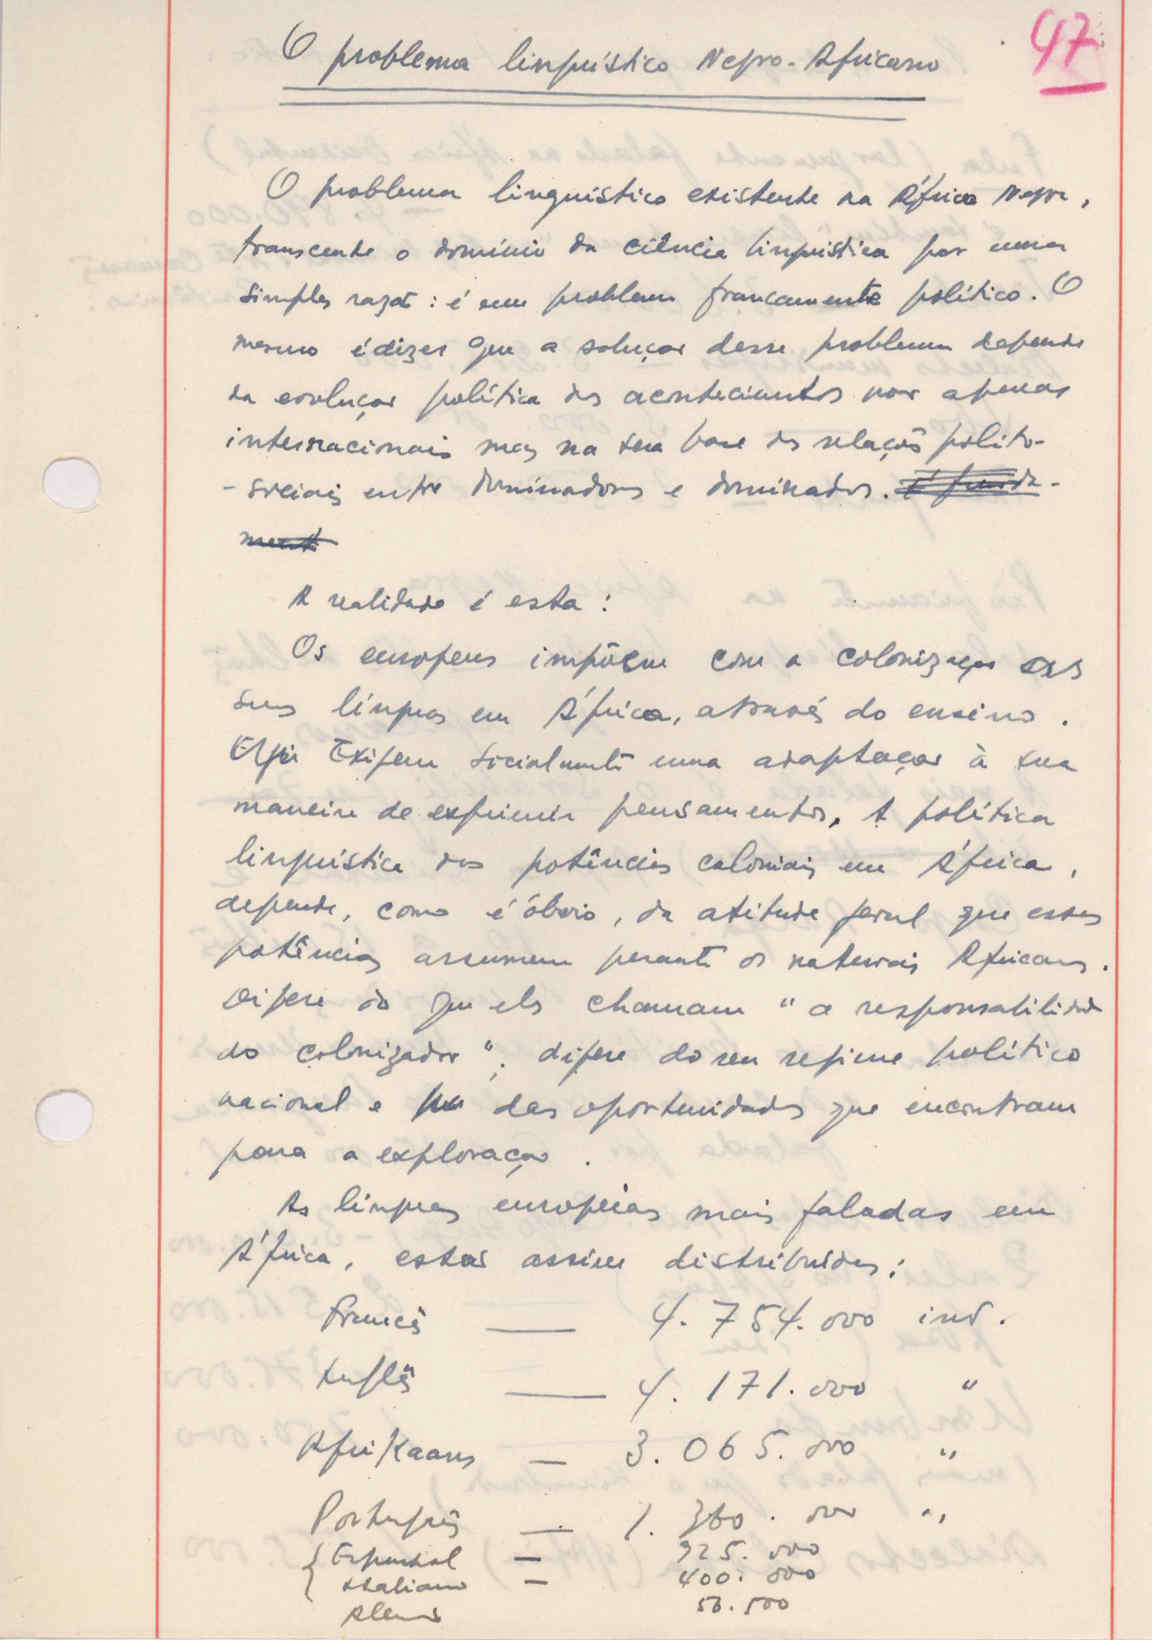 47
O problema linguístico Negro-Africano
O problema linguístico existente na África Negra,
transcende o domínio da ciência linguística por uma
simples razão: é um problema francamente político. O
mesmo é dizer que a solução desse problema depende
da evolução política dos acontecimentos não apenas
internacionais mas na sua base das relações polito-
-sociais entre dominadores e dominados. É funda-
ment
A realidade é esta:
Os europeus impõem com a colonização as
suas línguas em África, através do ensino.
Exigem socialmente uma adaptação à sua
maneira de exprimir pensamentos. A política
linguística das potências coloniais em África,
depende, como é óbvio, da atitude geral que essas
potências assumem perante os naturais Africanos.
Difere do que eles chamam "a responsabilidade
do colonizador"; difere do seu regime político
nacional e das oportunidades que encontram
para a exploração.
As línguas europeias mais faladas em
África, estão assim distribuídas:
Francês — 4.754.000 ind.
Inglês — 4.171.000 "
Afrikaans — 3.065.000 "
Português — 1.360.000 "
Espanhol — 925.000
Italiano — 400.000
Alemão 50.500